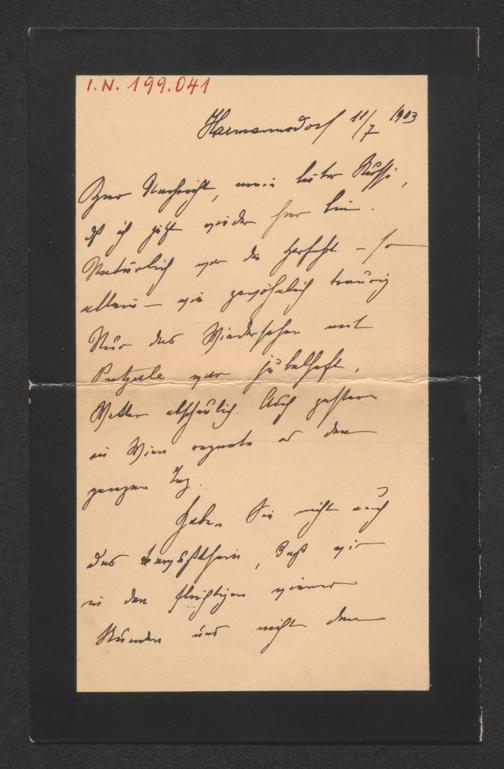 I.N. 199.041
Harmannsdorf 11/7 1903
Zur Nachricht, mein lieber
daß ich jetzt wieder hier bin.
Natürlich war die Herfahrt – so
allein – wie gewöhnlich traurig
Nur das Wiedersehen mit
war jubelhaft.
Wetter abscheulich. Auch gestern
in Wien regnete es den
ganzen Tag.
Haben Sie nicht auch
das Bewußtsein, daß wir
in den flüchtigen Wiener
Stunden uns nicht den